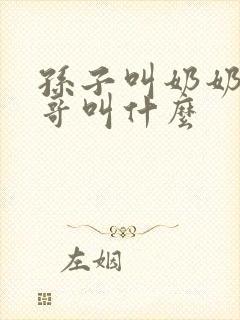 孫子叫奶奶
哥叫什麼
左姻